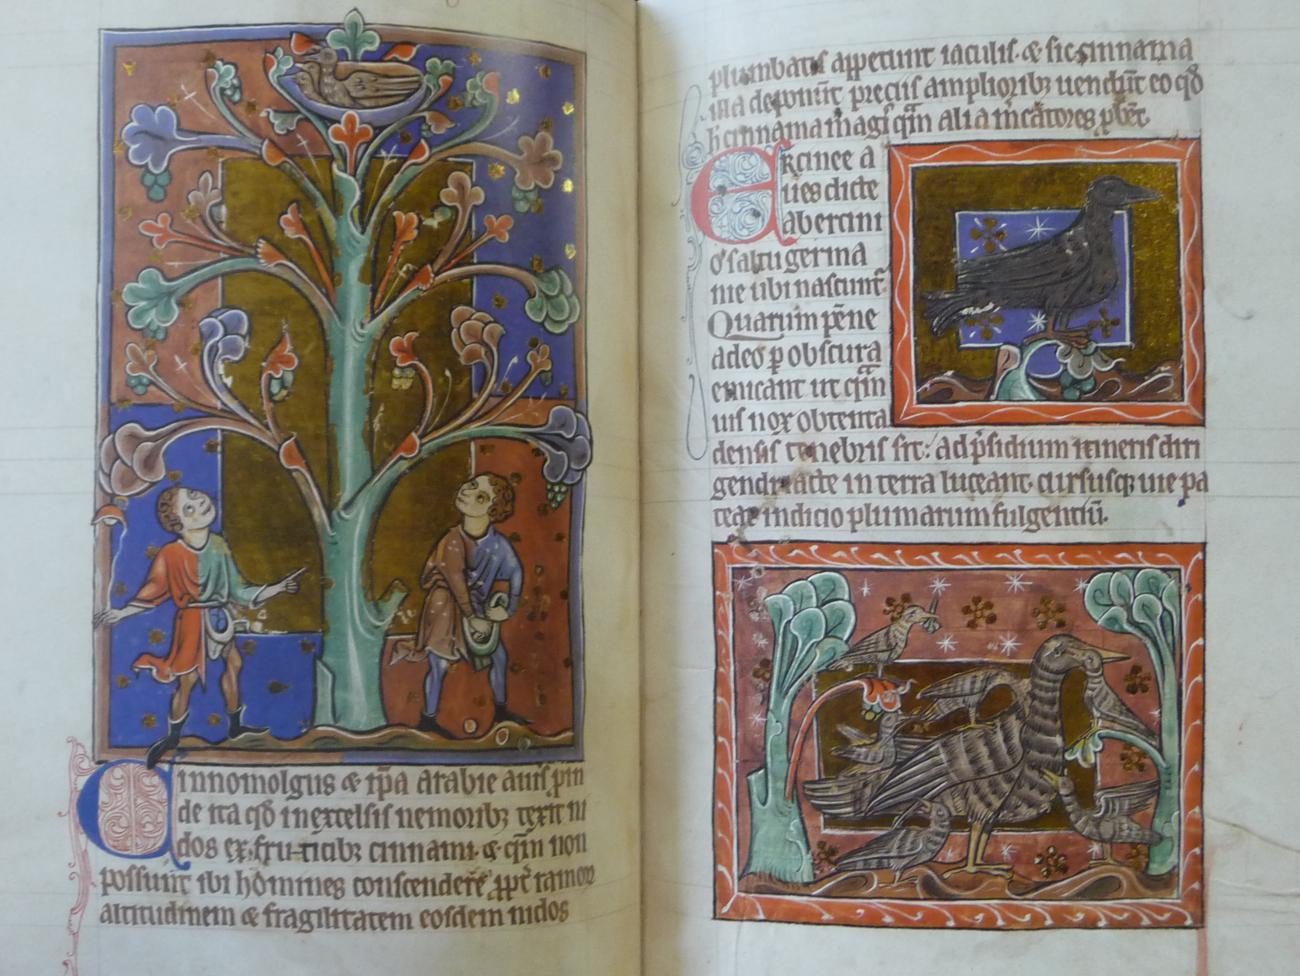 Cinnomolgus & ip̄a arabie auis ꝓin
de ita qđ in excelsis nemoribꝫ texit ni
dos ex fru-ticibꝫ cinnami. & qm̄ non
possunt ibi hōmines conscendere ꝓpt̄ ramoꝝ
altitudinem & fragilitatem eosdem nidos
plumbatis appetunt iaculis. & sic cinnama
illa deponūt p̄ciis amplioribꝫ uendūt eo qđ
h̄ cinnama magꝭ q̄m alia m̄catores ꝓbēt.
Ercinee a
ues dicte
ab ercini
o saltu germa
nie ubi nascunt᷑
Quarum pēne
adeo ꝑ obscura
emicant ut qm̄
uis nox obtenta
densis tenebris sit: ad p̄sidium itineris diri
gendi acte in terra luceant. cursusqꝫ uie pa
teat indicio plumarum fulgentiū.